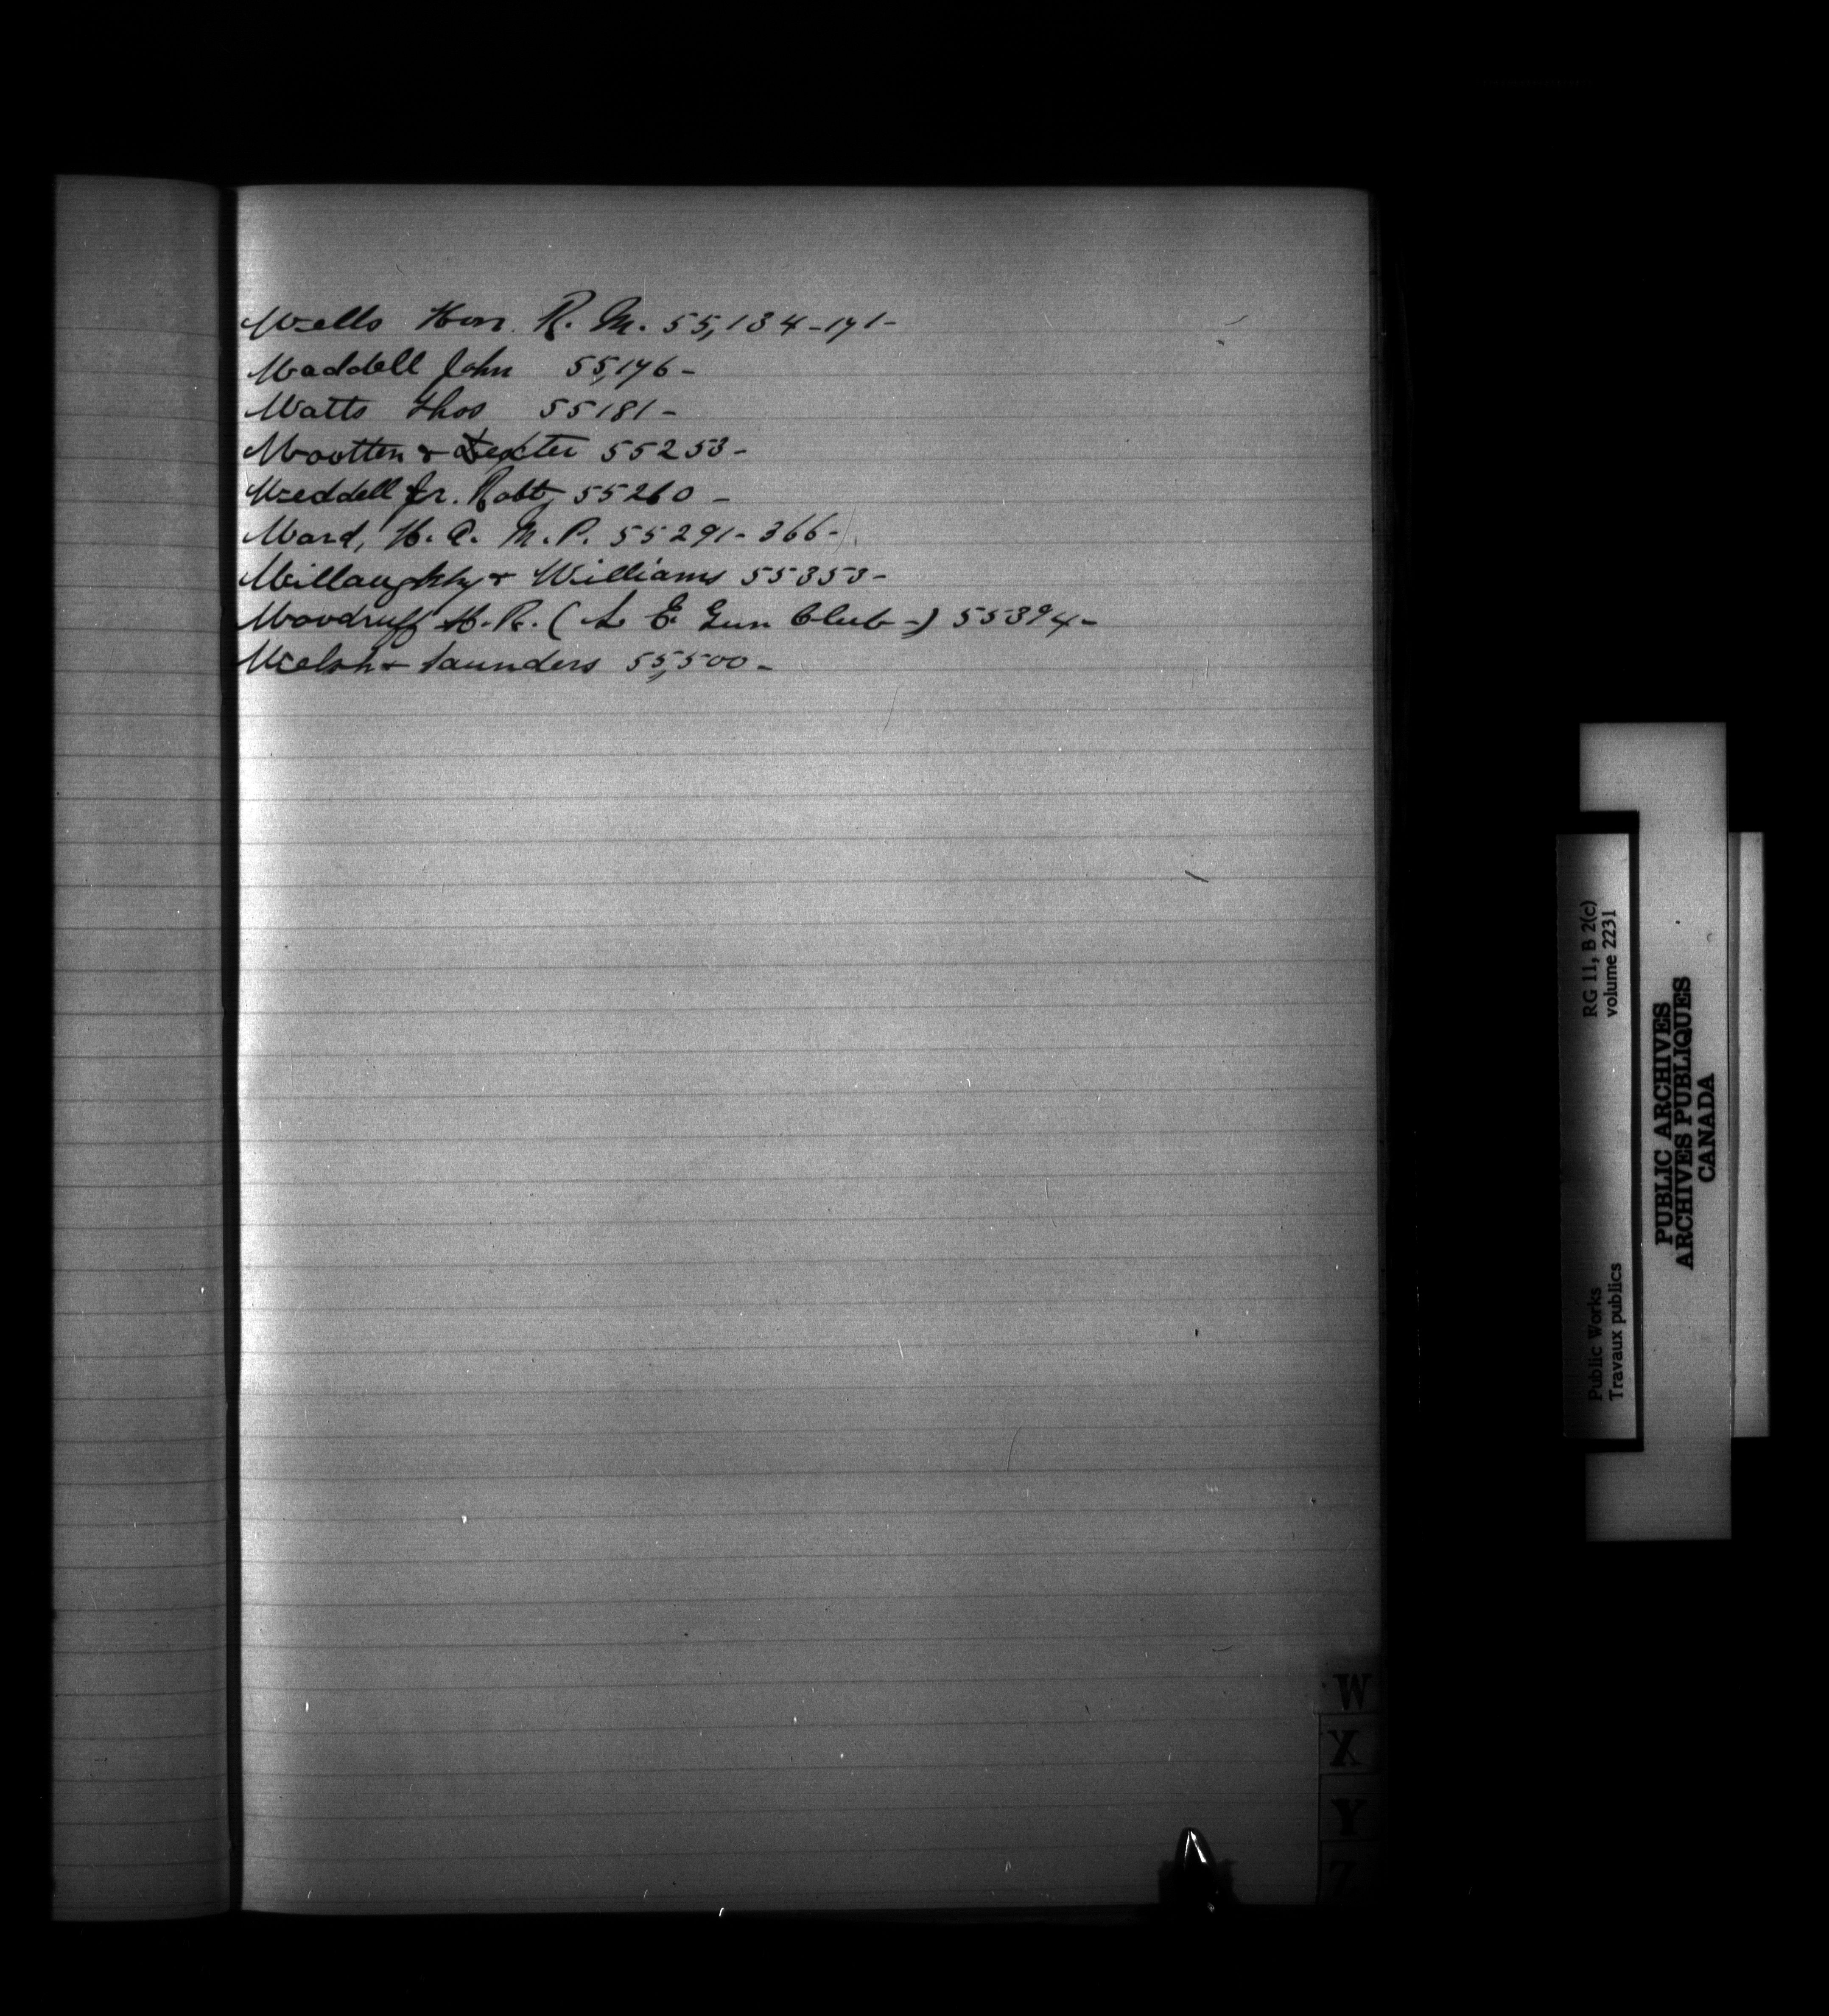 Wells Hon. R. M. 55,134-171-
Waddell John 55,176-
Watts Thos 55181-
Wootten & Dexter 55253-
Weddell Jr. Robt, 55260 -
Ward, H. A. M. P. 55291- 366-
Willaughby & Williams 55353-
Woodruff H. R. ( L E Gun Club -) 55394-
Welsh & Saunders 55,500-
W
X
Y
Z
RG 11, B 2(c)
volume 2231
Public Works
Travaux publics
PUBLIC ARCHIVES
ARCHIVES PUBLIQUES
CANADA